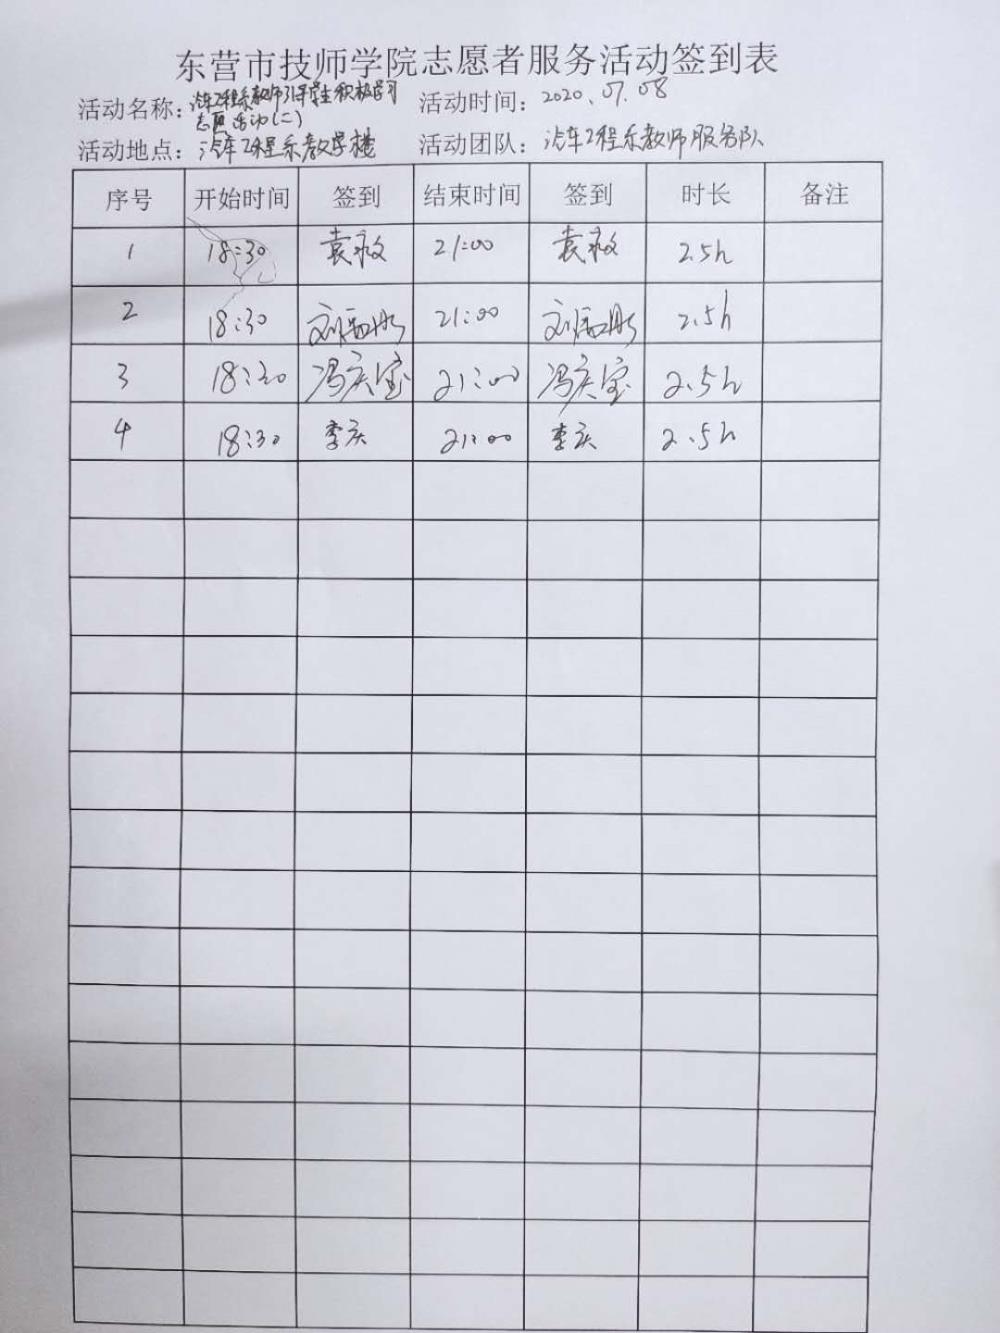 东营市技师学院志愿者服务活动签到表
活动名称：汽车工程系教师引导学生积极学习 活动时间：2020.07.08
志愿活动(二)
活动地点：汽车工程系教学楼 活动团队：汽车工程系教师服务队
序号 开始时间 签到 结束时间 签到 时长 备注
1 18:30 袁 21:00 袁 2.5h
2 18:30 刘 21:00 刘 2.5h
3 18:30 冯庆宝 21:00 冯庆宝 2.5h
4 18:30 李庆 21:00 李庆 2.5h